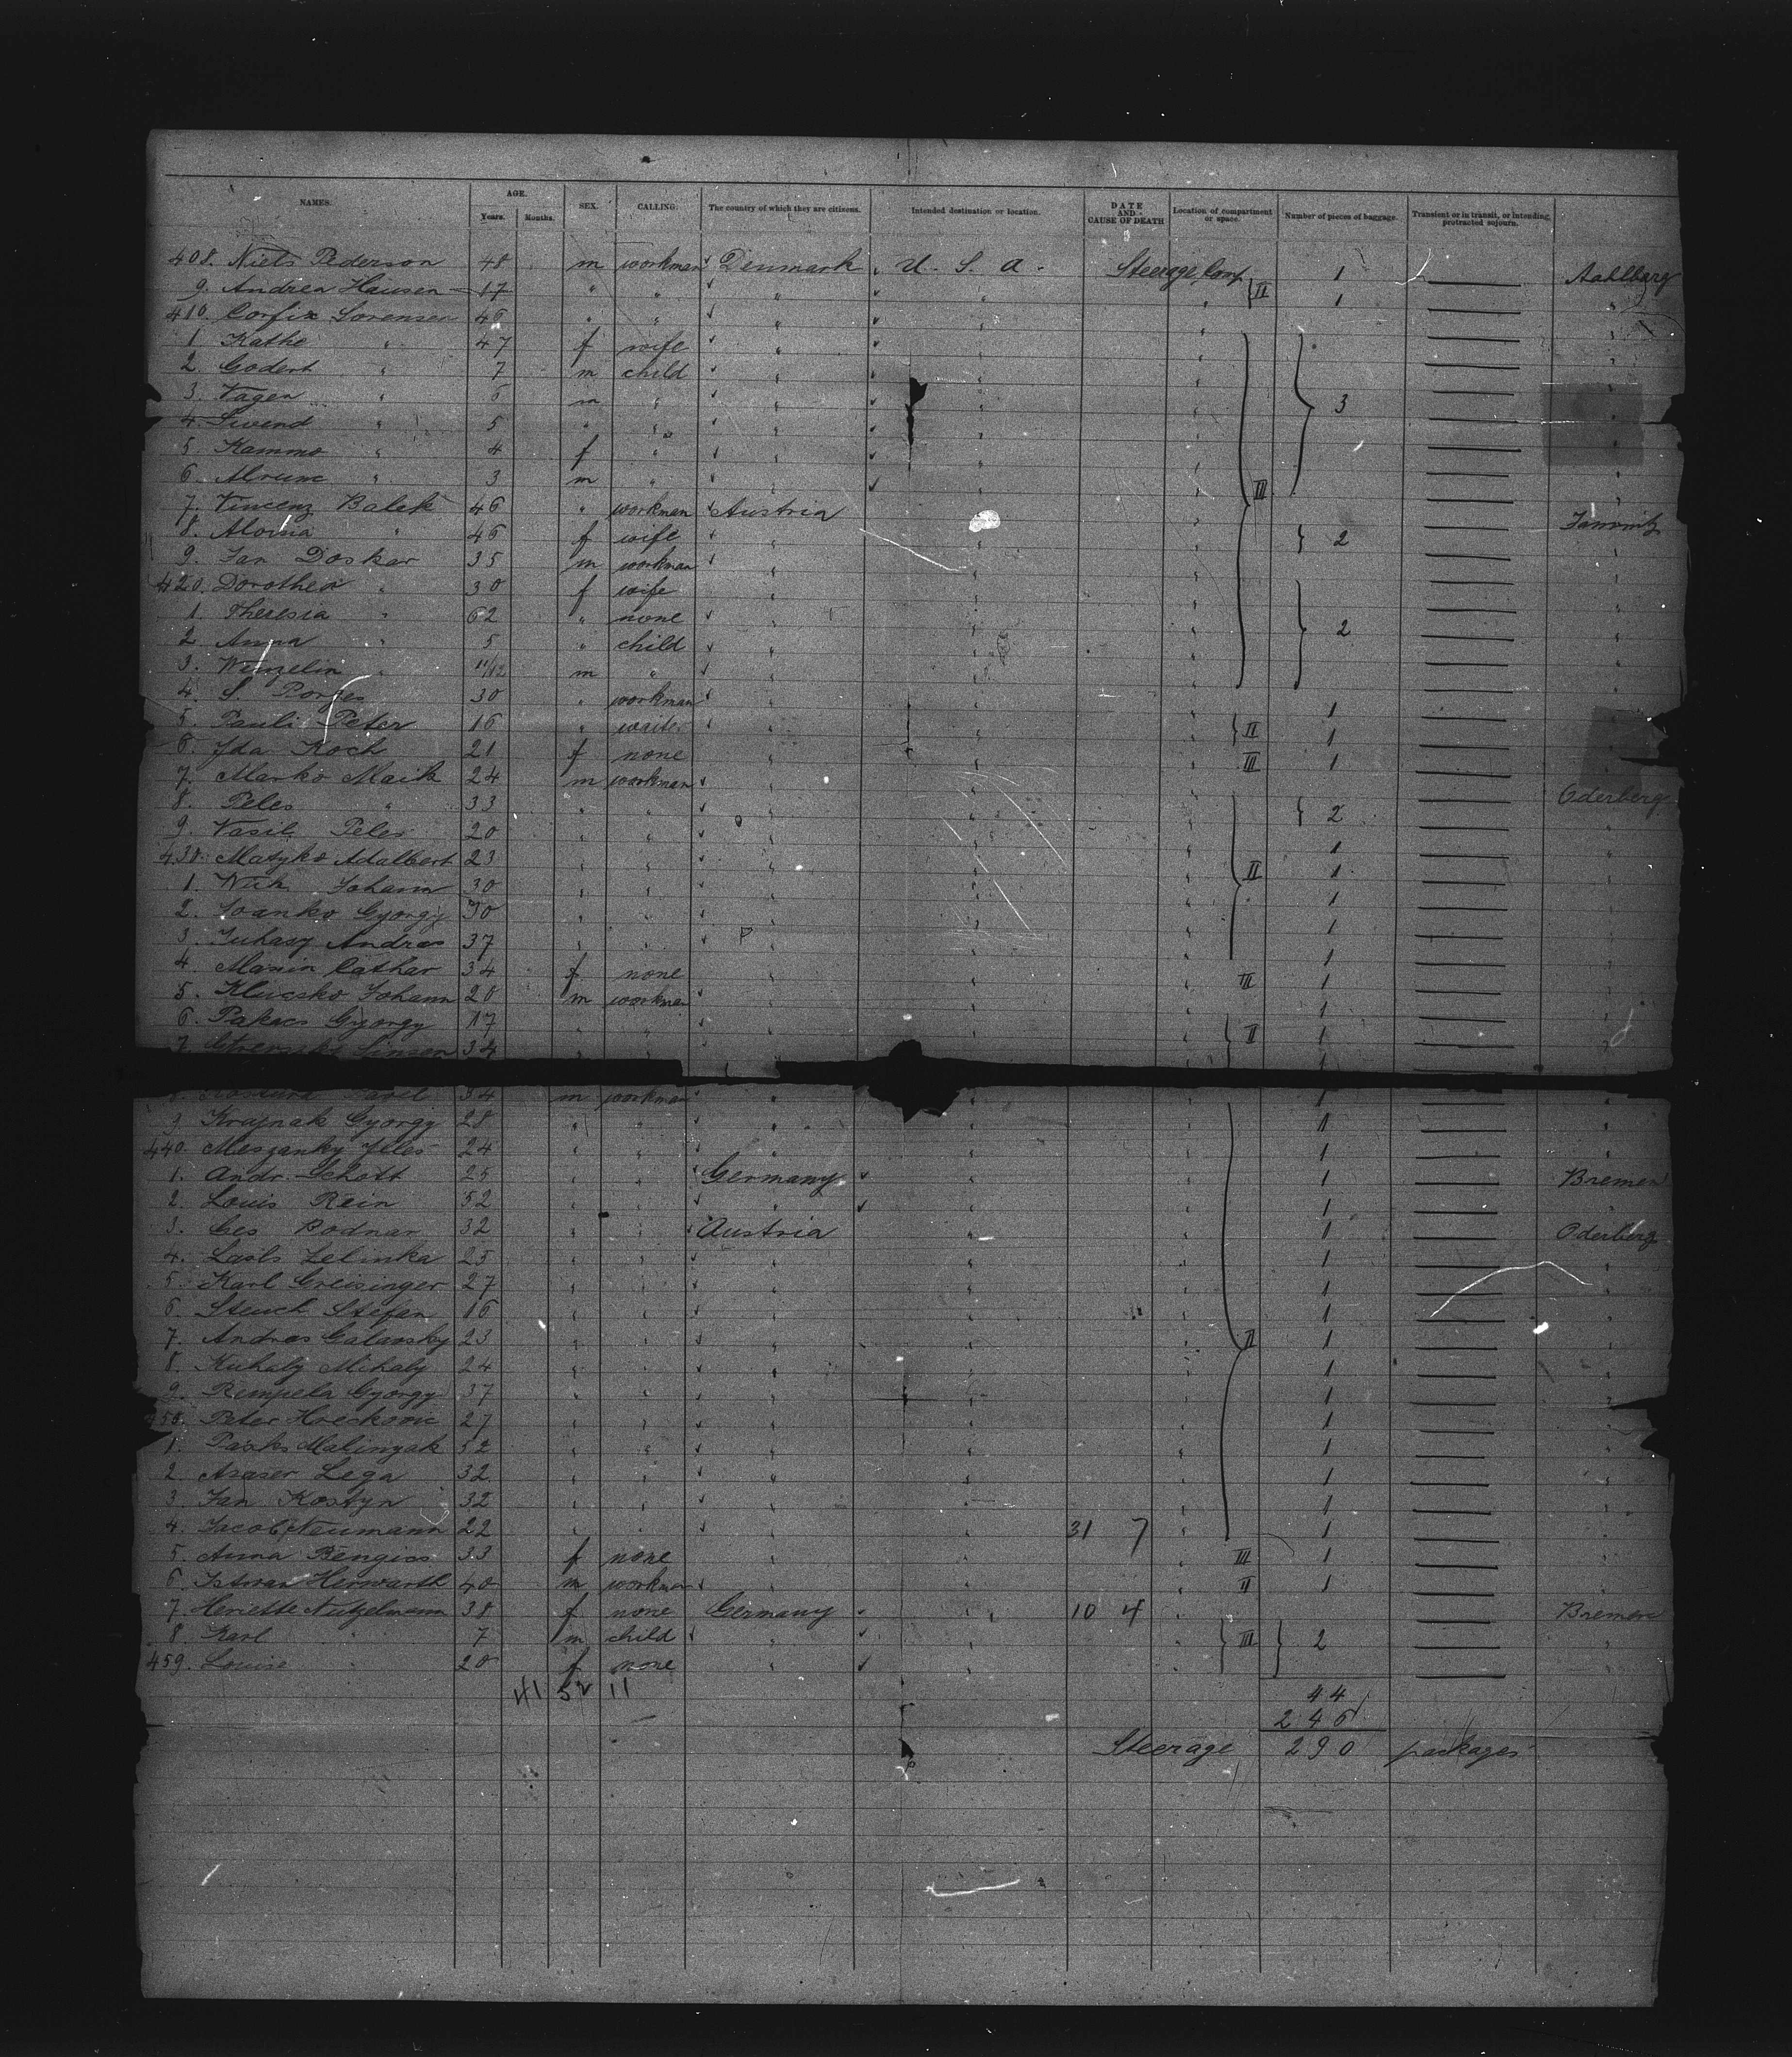 NAMES. AGE. Years. Months. SEX. CALLING. The country of which they are citizens. Intended destination or location. DATE AND CAUSE OF DEATH Location of compartment or space. Number of pieces of baggage. Transient or in transit, or intending protracted sojourn.
408. Niels Pederson 48 m workman Denmark U. S. A. Steerage Comp 1 Aahlborg
9. Andrea Hansen 17 " " " " " II 1 "
410. Corfix Sorensen 46 " " " " "
1 Kathe " 47 f wife " " "
2. Godert " 7 m child " " "
3. Vagen " 6 m " " " " 3
4. Sivend " 5 " " " " "
5 Kamma " 4 f " " " "
6. " 3 m " " " " III
7. Vincenz Balek 46 " workman Austria "
8. Aloisia " 46 f wife " " " 2 "
9. Jan Doskar 35 m workman " " "
420. Dorothea " 30 f wife " " "
1. Theresia " 62 " none " " "
2. Anna " 5 " child " " " 2 "
3. Wenzelin " 11/12 m " " " "
4. S. Porges 30 " workman " " " 1
5. Pauli Peter 16 " waiter " " " II 1
6. Ida Koch 21 f none " " " III 1
7. Marko Maik 24 m workman " " " Oderberg
8. Peles " 33 " " " " " 2 "
9. Vasil Peles 20 " " " " " 1
430. Matyko Adalbert 23 " " " " " II 1 "
1. Johann 30 " " " " " 1
2. Ivanko Gyorgy 30 " " " " " 1
3. Juhasz Andras 37 " " " " " 1
4. Cathar 34 f none " " " III 1
5. Johann 20 m workman " " " 1
6. Gyorgy 17 " " " " " II 1
7. 34 " " " " " 1
34 m workman " " " 1
9 Krajnak Gyorgy 28 " " " " " 1 "
440. Meszanky 24 " " " " " 1 "
1. Andr. Schott 25 " " Germany " " 1 Bremen
2. Louis Rein 52 " " " " " 1 "
3. Bodnar 32 " " Austria " " 1 Oderberg
4. Zelinka 25 " " " " " 1 "
5. Karl Greisinger 27 " " " " " 1 "
6. Stefan 16 " " " " " 1 "
7. Andras Galansky 23 " " " " " II 1 "
8. Mihaly 24 " " " " " 1 "
9. Rempela Gyorgy 37 " " " " " 1 "
450. Peter 27 " " " " " 1 "
1. Malinyak 52 " " " " " 1 "
2 Lega 32 " " " " " 1 "
3. Jan Kostyn 32 " " " " " 1 "
4. Jacob Neumann 22 " " " " 31 7 " 1 "
5. Anna 33 f none " " " III 1 "
6. Istvan Herwarth 40 m workman " " " II 1 "
7. Heriette Nutzelmann 38 f none Germany " 10 4 " Bremen
8 Karl " 7 m child " " " III 2 "
459. Louise " 20 f none " " "
41 52 11 44
246
Steerage 290 packages